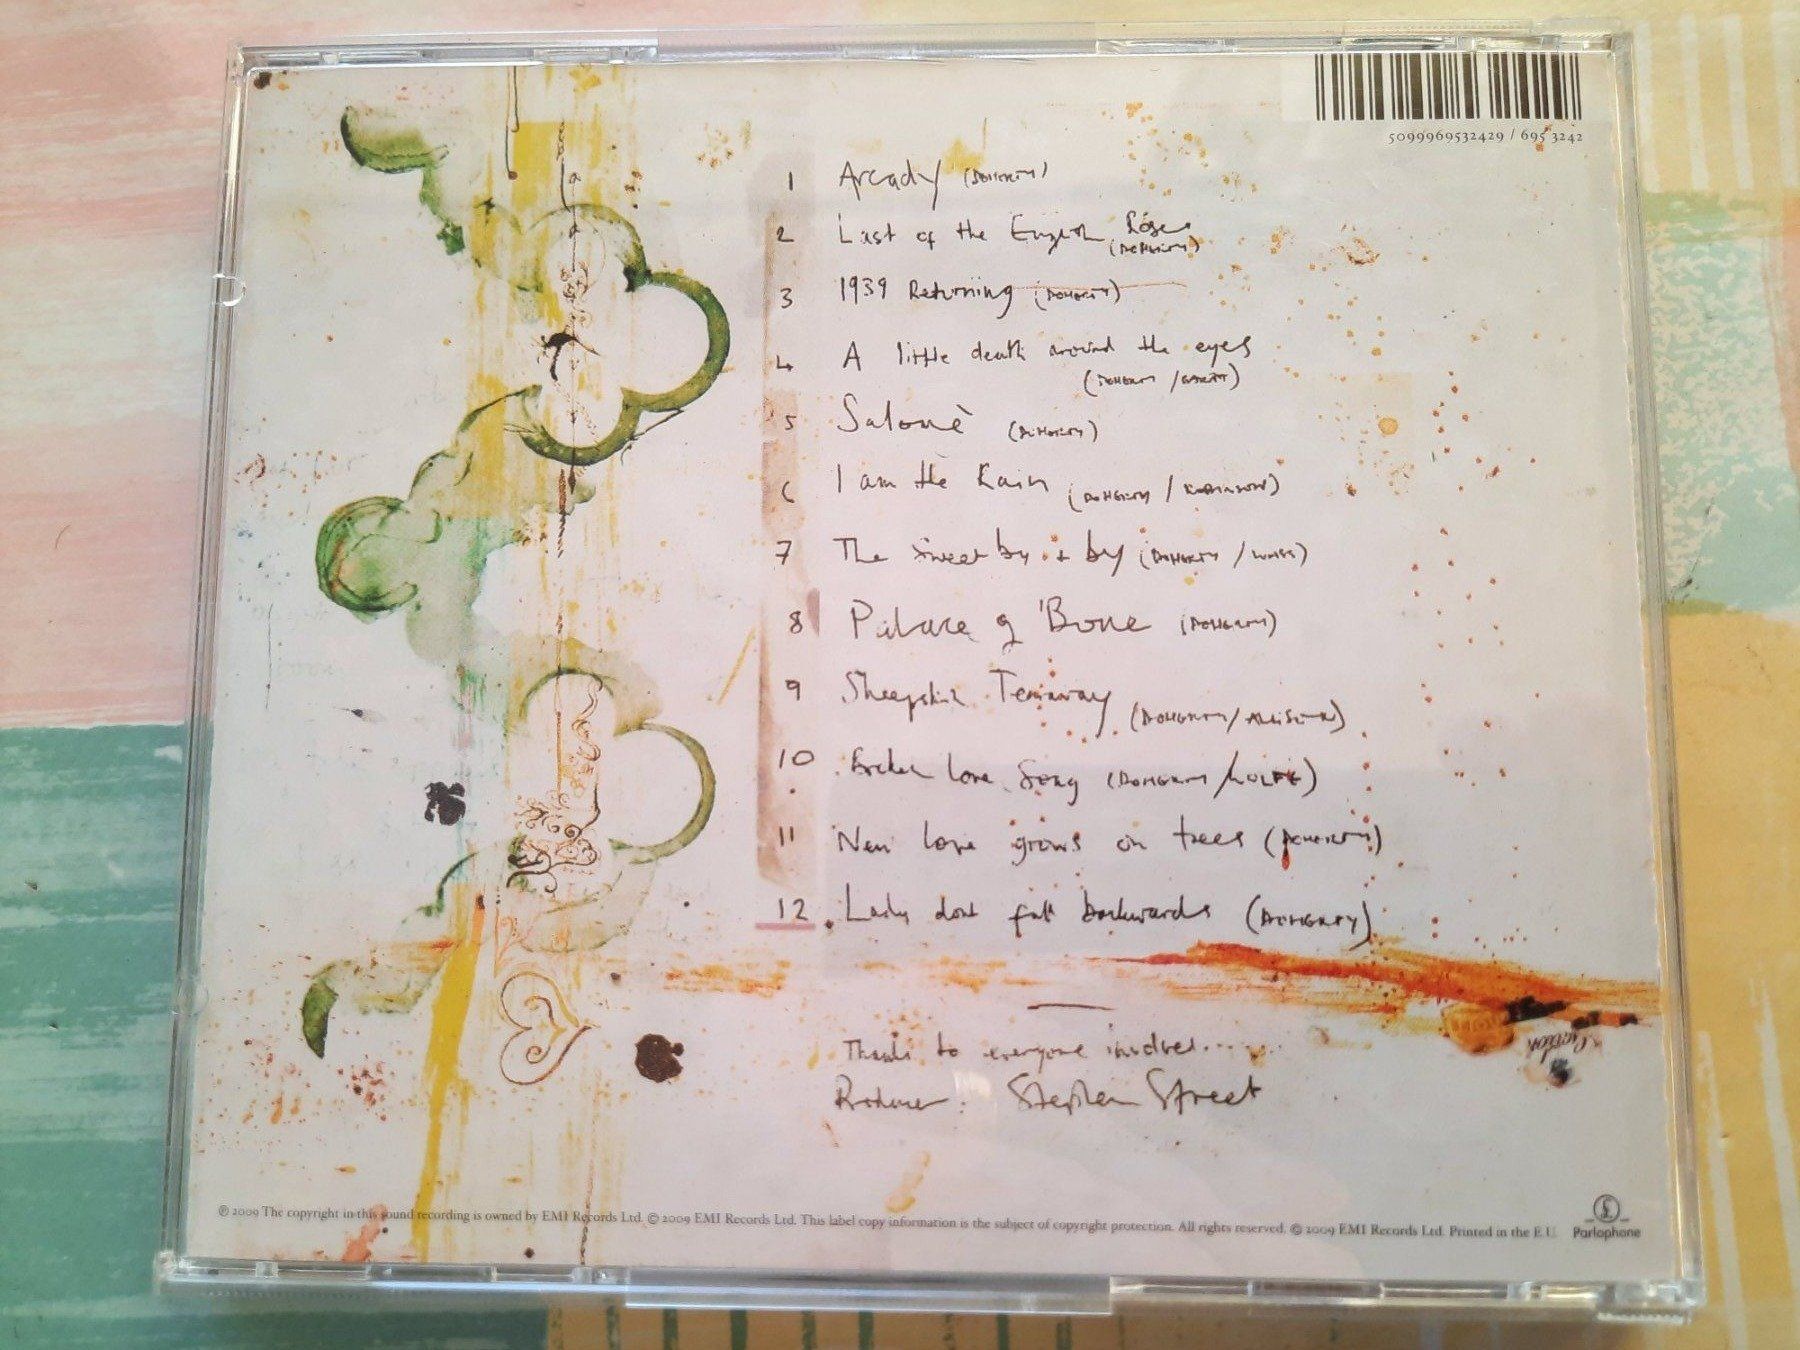 5099969532429 / 695 3242
1 Arcady (DOHERTY)
2 Last of the English Roses
(DOHERTY)
3 1939 Returning (DOHERTY)
4 A little death around the eyes
(DOHERTY /
5 Salomè (DOHERTY)
6 I am the Rain (DOHERTY / ROBINSON)
7 The Sweet by + by (DOHERTY /
8 Palace of Bone (DOHERTY)
9 Sheepskin Tearaway
(DOHERTY/ALLISON)
10 Broken Love Song (DOHERTY/WOLFE)
11 New love grows on trees (DOHERTY)
12. Lady dont fall backwards (DOHERTY)
Thanks to everyone involved.......
Producer: Stephen Street
℗ 2009 The copyright in this sound recording is owned by EMI Records Ltd. © 2009 EMI Records Ltd. This label copy information is the subject of copyright protection. All rights reserved. © 2009 EMI Records Ltd. Printed in the E.U.
£
Parlophone